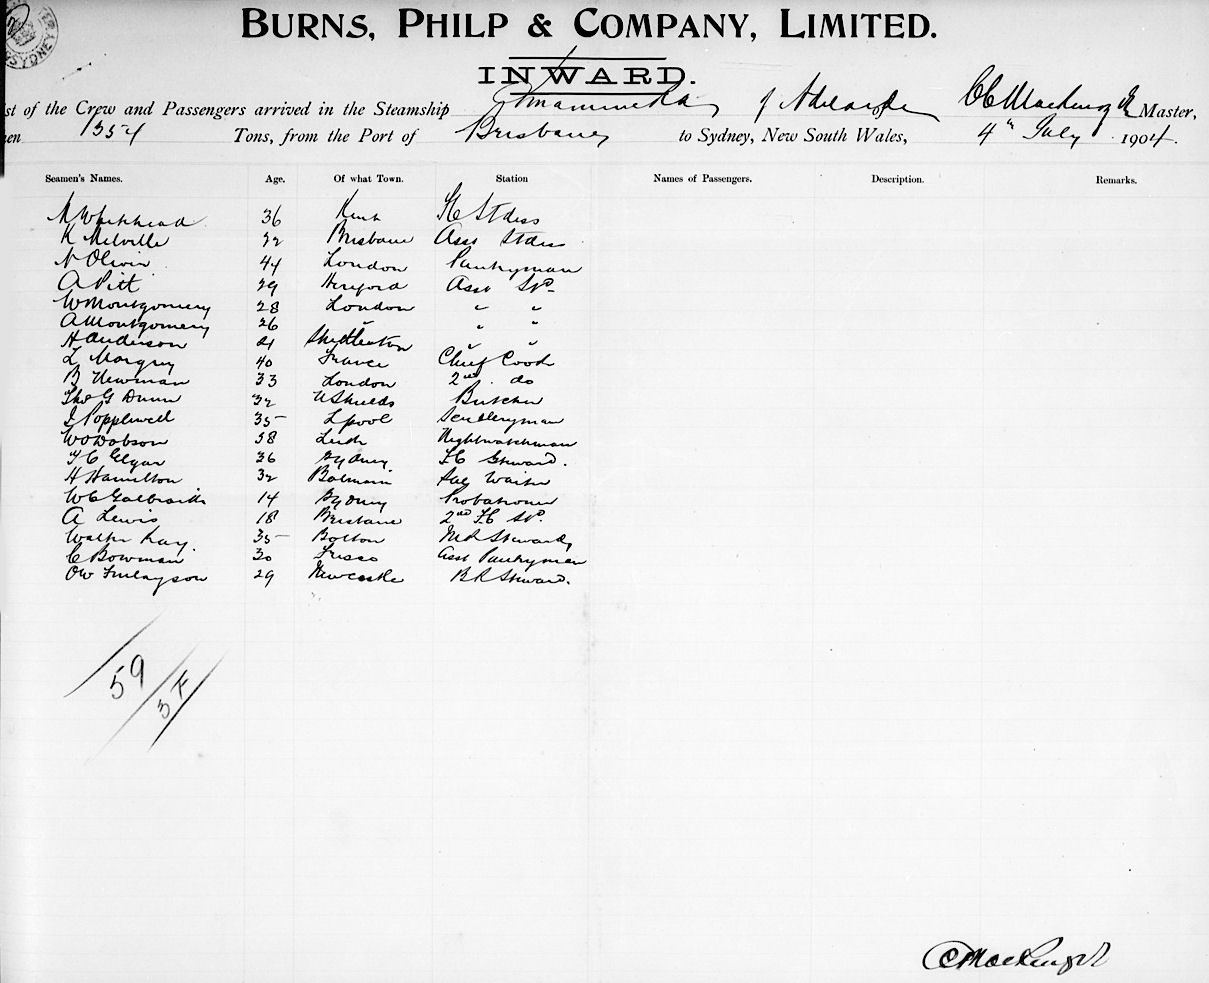 BURNS, PHILP & COMPANY, LIMITED.
INWARD.
st of the Crew and Passengers arrived in the Steamship of Adelaide Master,
1354 Tons, from the Port of Brisbane to Sydney, New South Wales, 4th July 1904.
Seamen's Names. Age. Of what Town. Station Names of Passengers. Description. Remarks.
M Whitehead 36 Kent
K Melville Brisbane Asst Stdss
N Olivin 44 London Pantryman
A Pitt 29 Hereford Asst Std
W Montgomery 28 London " "
A Montgomery 26 " " "
H Anderson 21 " "
L Margry 40 France Chief Cook
B Newman 33 London 2nd do
Thos G Dunn 32 N Shields Butcher
J Popplewell 35 Lpool Sculleryman
W O Dobson 38 Leith Nightwatchman
T C Elgar 36 Sydney FC Steward.
H Hamilton 32 Balmain Sal Waiter
W C Galbraith 14 Sydney Probationer
A Lewis 18 Brisbane 2nd FC Std.
Walter Kay. 35 Bolton Steward
C Bowman 30 Frisco Asst Pantryman
O W Finlayson 29 Newcastle B R Steward.
59
3F
C Mackenzie